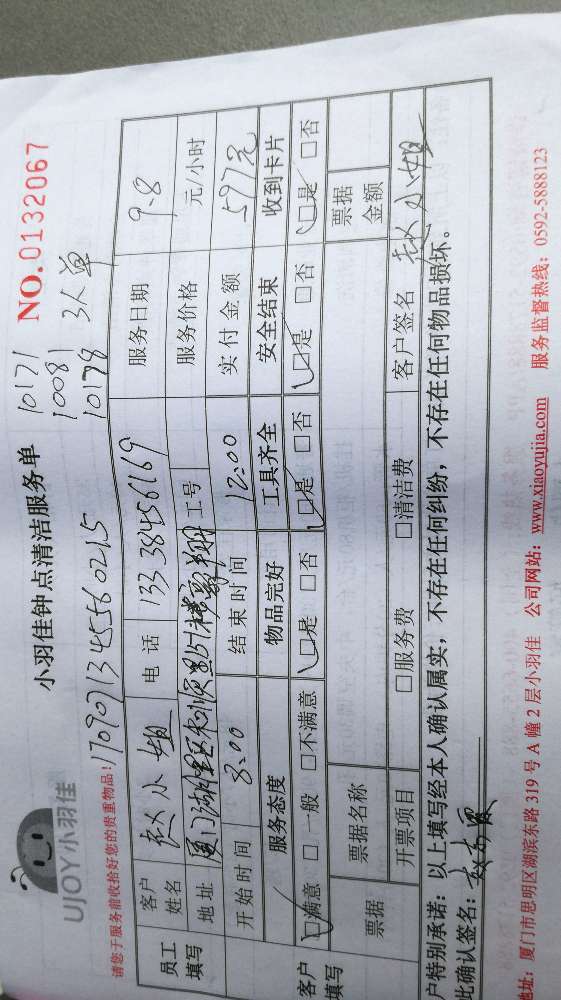 UJOY小羽佳
小羽佳钟点清洁服务单
NO.0132067
10171
10081
10178 3人单
请您于服务前收拾好您的贵重物品!
17090713455560215
员工填写
客户姓名 赵小姐 电话 13338456169 服务日期 9-8
地址 厦门湖 工号 服务价格 元/小时
开始时间 8:00 结束时间 12:00 实付金额 597元
客户填写
服务态度 物品完好 工具齐全 安全结束 收到卡片
□满意 □一般 □不满意 □是 □否 □是 □否 □是 □否 □是 □否
票据 票据名称 票据金额
开票项目 □服务费 □清洁费 客户签名 赵小姐
户特别承诺:以上填写经本人确认属实,不存在任何纠纷,不存在任何物品损坏。
此确认签名:
地址:厦门市思明区湖滨东路 319 号 A 幢 2 层小羽佳 公司网站:www.xiaoyujia.com 服务监督热线:0592-5888123